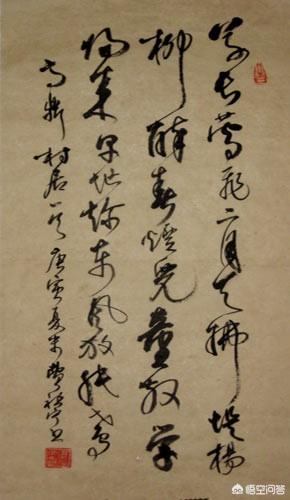 草長鶯飛二月天拂堤楊
柳醉春煙兒童散学
歸来早忙趁東風放紙鳶
高鼎 村居一首 庚寅夏末 书
悟空问答